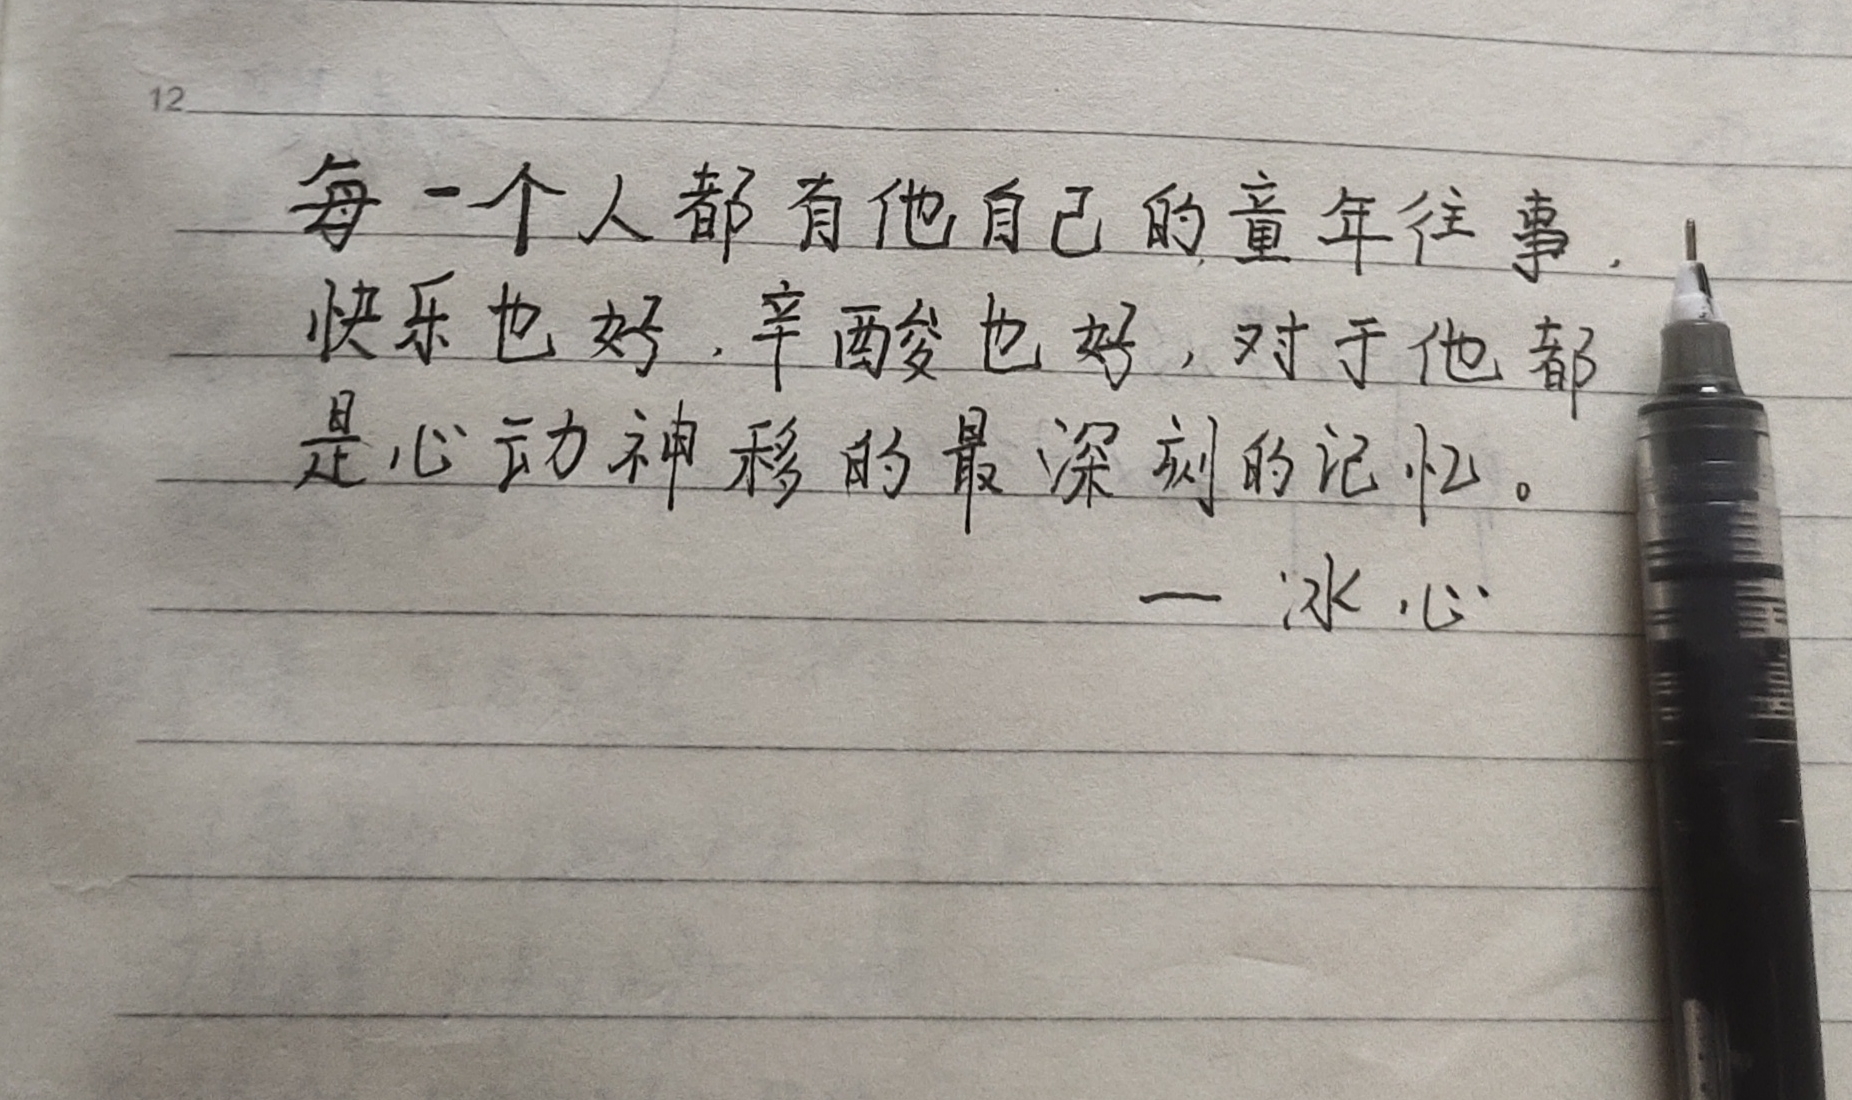 12
每一个人都有他自己的童年往事，
快乐也好，辛酸也好，对于他都
是心动神移的最深刻的记忆。
— 冰心